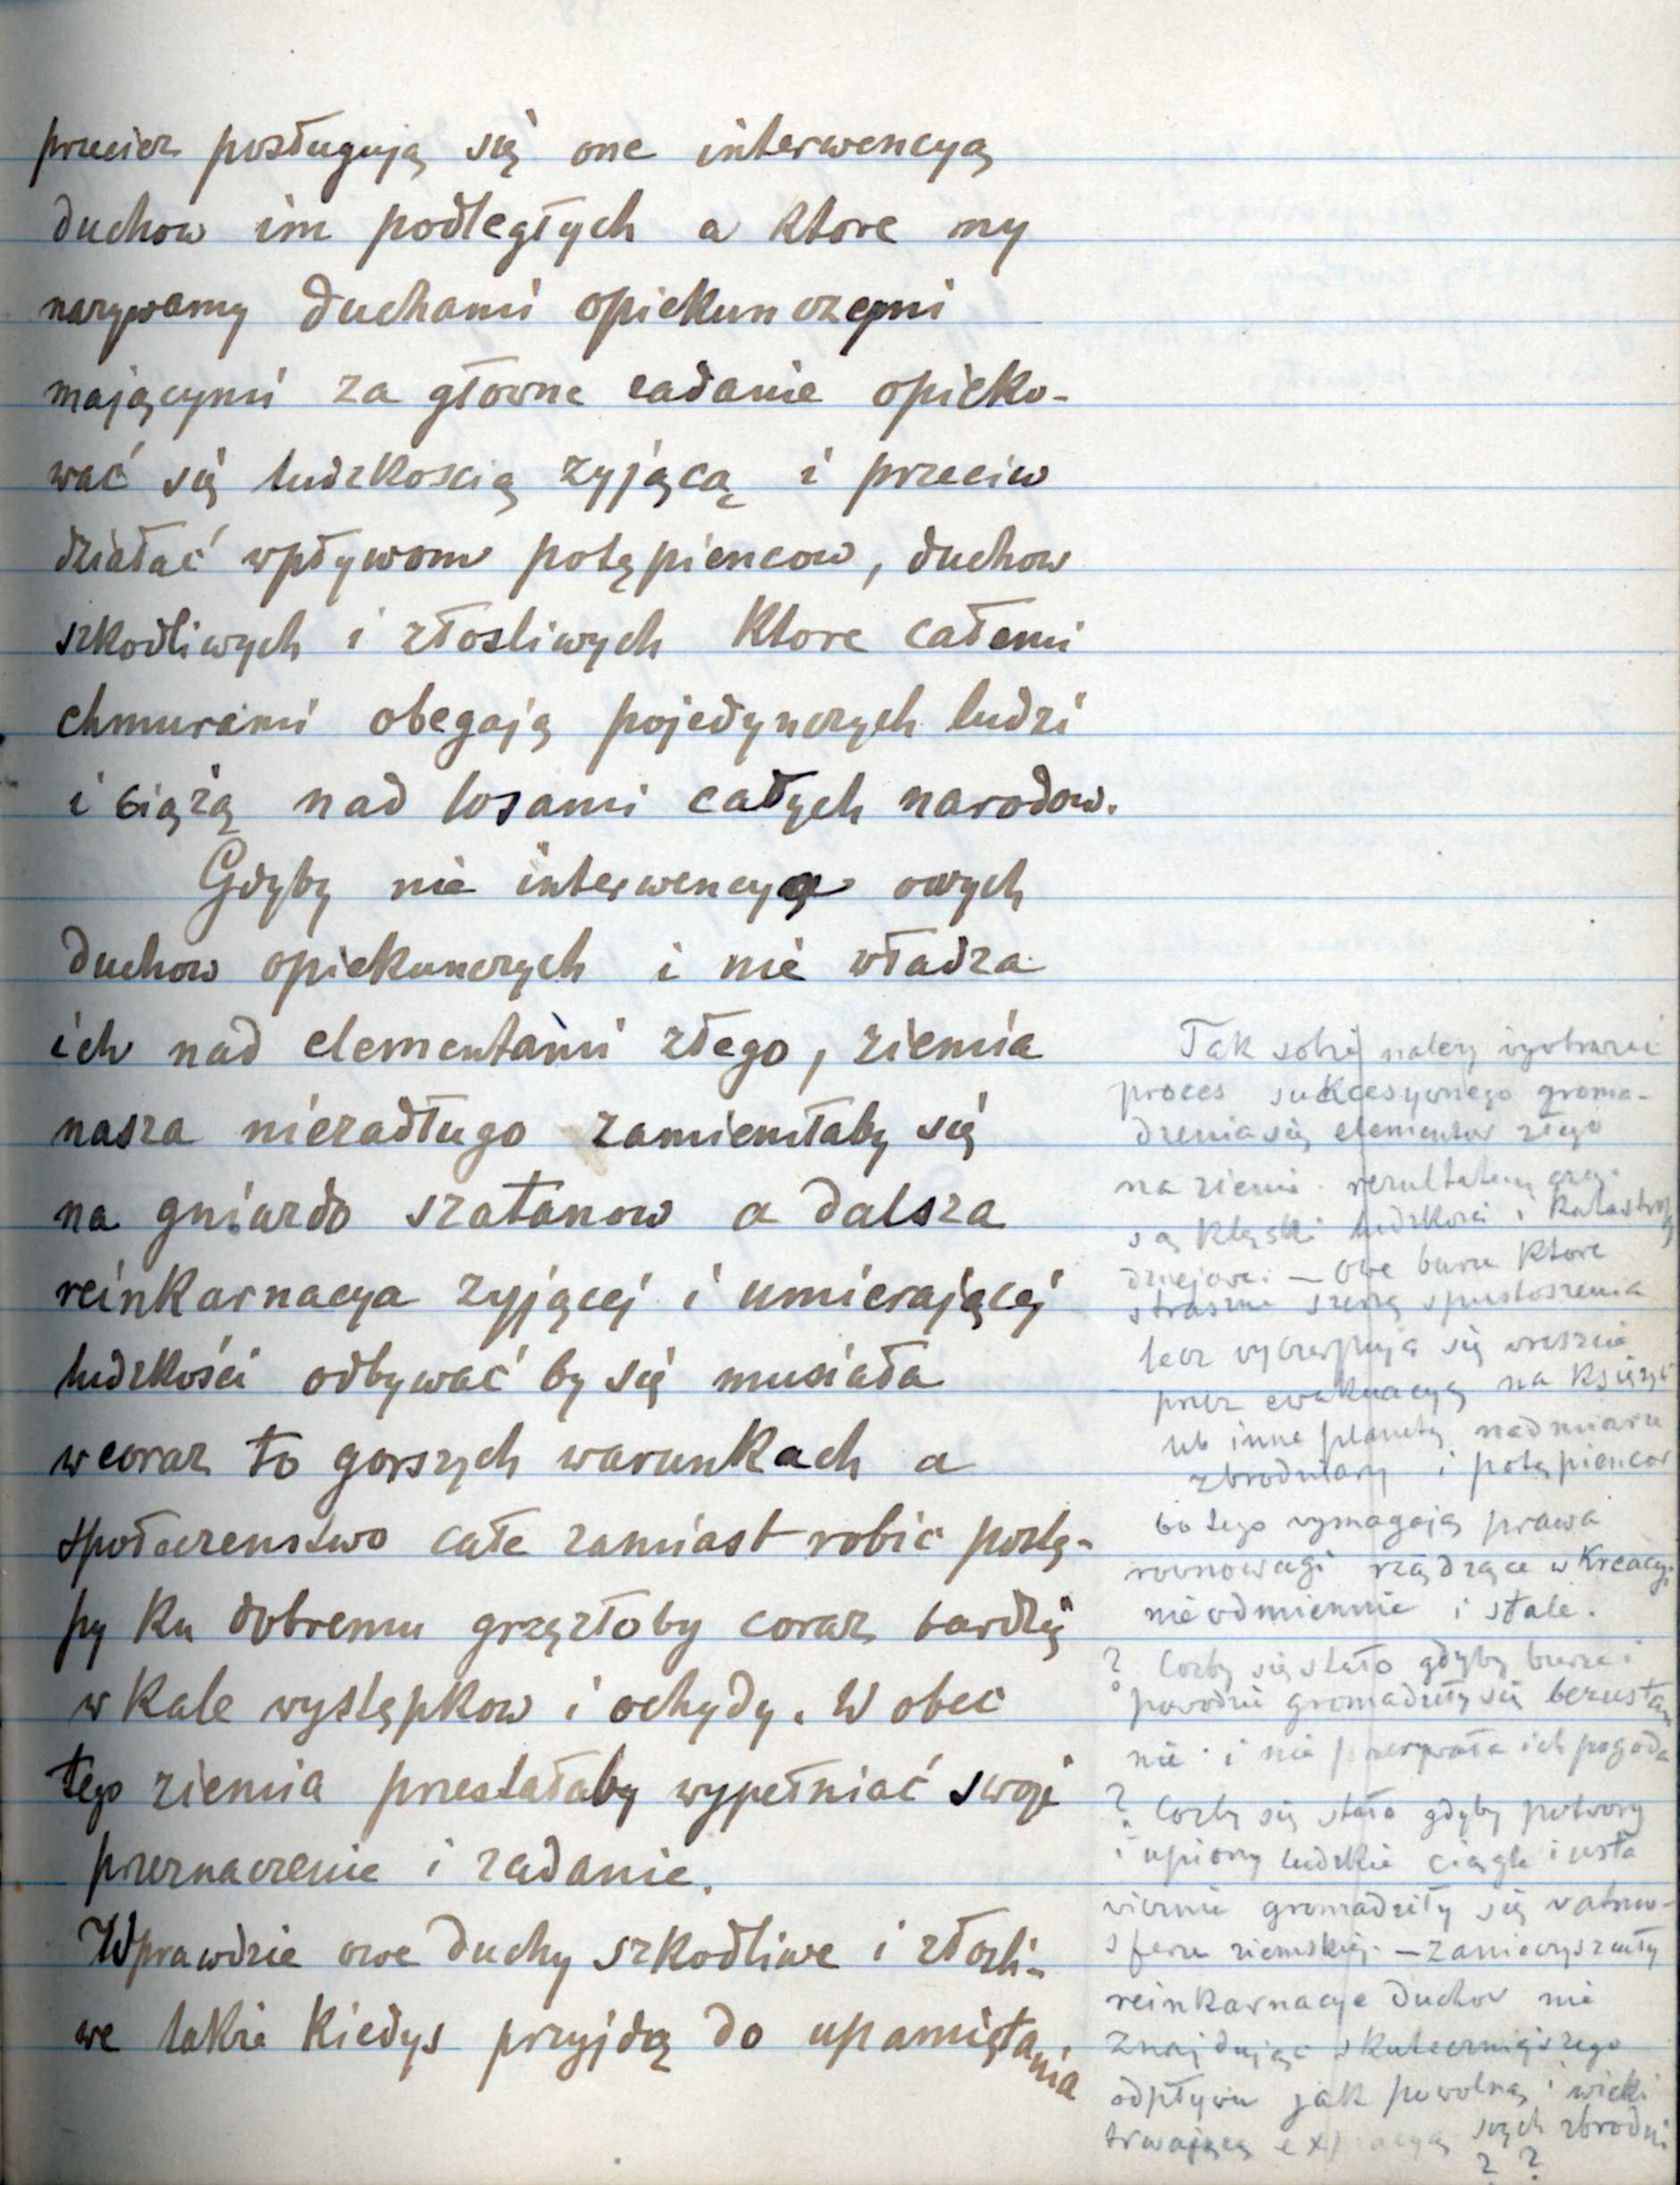 przeciez posługują się one interwencyą
duchow im podległych a ktore my
nazywamy duchami opiekunczemi
mającymi za głowne zadanie opieko-
wać się ludzkoscią zyjącą i przeciw
działać wpływom potępiencow, duchow
szkodliwych i złosliwych ktore całemi
chmurami obegają pojedynczych ludzi
i ciążą nad losami całych narodow.
Gdyby nie interwencya owych
duchow opiekunczych i nie władza
ich nad elementami złego, ziemia
nasza niezadługo zamieniłaby się
na gniazdo szatanow a dalsza
reinkarnacya zyjącej i umierającej
ludzkości odbywać by się musiała
w coraz to gorszych warunkach a
społeczenstwo całe zamiast robić postę-
py ku dobremu grzęzłoby coraz bardziej
w kale występkow i ochydy. W obec
tego ziemia przestałaby wypełniać swoje
przeznaczenie i zadanie.
Wprawdzie owe duchy szkodliwe i złosli-
we takie kiedys przyjdą do upamiętania
Tak sobie należy wyobrazić
proces sukcesywnego groma-
dzenia się elementow złego
na ziemi. rezultatem
są klęski ludzkości i katastrofy
dziejowe. — Owe burze ktore
straszne szerzą spustoszenia
lecz wyczerpują się wreszcie
przez ewakuacyę na księżyc
lub inne planety nadmiaru
zbrodniarzy i potępiencow
bo tego wymagają prawa
rownowagi rządzące w Kreacyi
nieodmiennie i stale.
? Cozby się stało gdyby burze i
powodzie gromadziły się bezustan
nie i nie przerywała ich pogoda
? Cozby się stało gdyby potwory
i upiory ludzkie ciągle i usta
wicznie gromadziły się w atmo-
sferze ziemskiej. — zanieczyszczały
reinkarnacye duchow nie
znajdując skuteczniejszego
odpływu jak powolną i wieki
trwającą expiacyą swych zbrodni
? ?